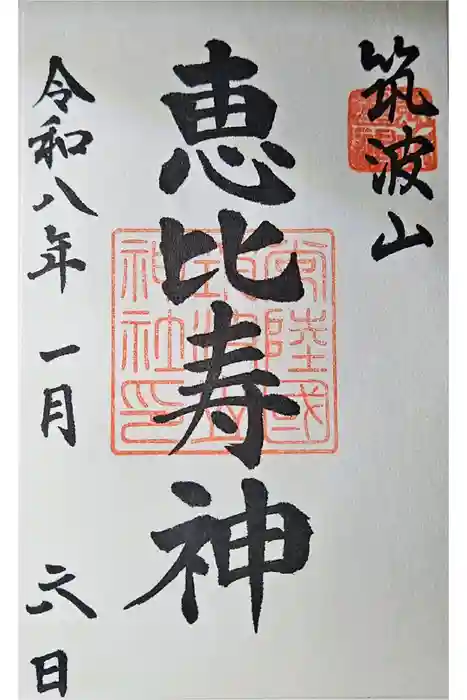 筑波山
恵比寿神
常陸國
筑波山
神社印
令和八年 一月 六日